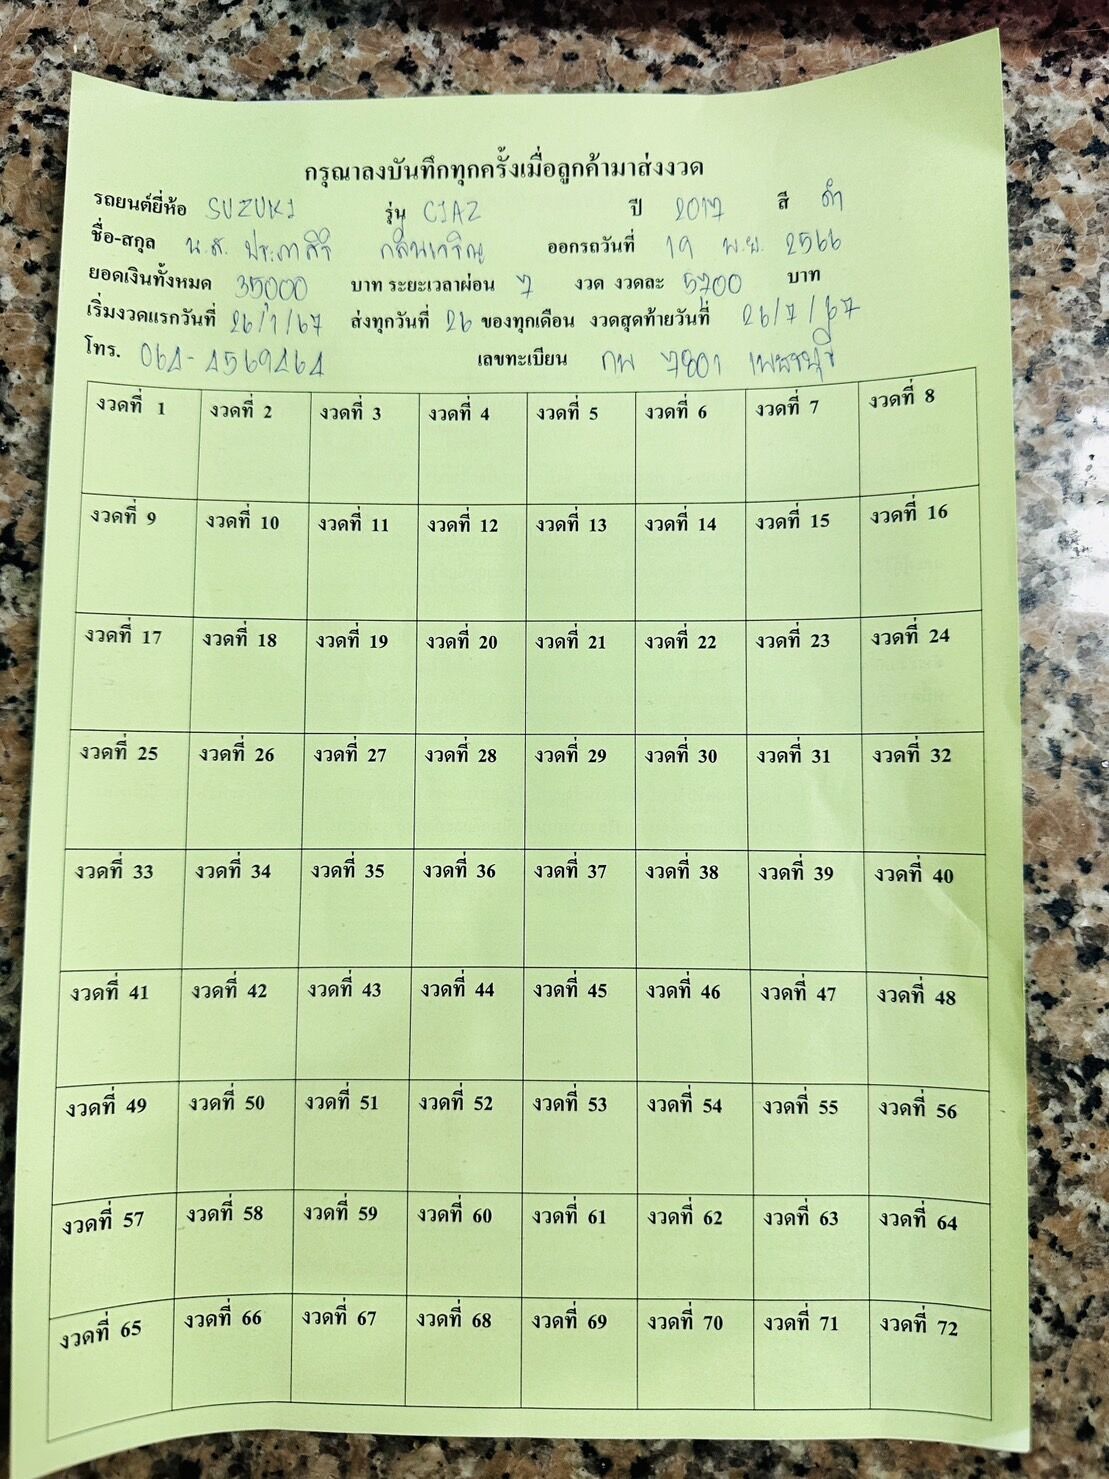 กรุณาลงบันทึกทุกครั้งเมื่อลูกค้ามาส่งงวด
รถยนต์ยี่ห้อ SUZUKI รุ่น CIAZ ปี 2017 สี ดำ
ชื่อ-สกุล น.ส. ประภาสิริ กลิ่นเจริญ ออกรถวันที่ 19 พ.ย. 2566
ยอดเงินทั้งหมด 35000 บาท ระยะเวลาผ่อน 7 งวด งวดละ 5700 บาท
เริ่มงวดแรกวันที่ 26/1/67 ส่งทุกวันที่ 26 ของทุกเดือน งวดสุดท้ายวันที่ 26/7/67
โทร. 064-4569464 เลขทะเบียน กพ 7801 เพชรบุรี
งวดที่ 1 งวดที่ 2 งวดที่ 3 งวดที่ 4 งวดที่ 5 งวดที่ 6 งวดที่ 7 งวดที่ 8
งวดที่ 9 งวดที่ 10 งวดที่ 11 งวดที่ 12 งวดที่ 13 งวดที่ 14 งวดที่ 15 งวดที่ 16
งวดที่ 17 งวดที่ 18 งวดที่ 19 งวดที่ 20 งวดที่ 21 งวดที่ 22 งวดที่ 23 งวดที่ 24
งวดที่ 25 งวดที่ 26 งวดที่ 27 งวดที่ 28 งวดที่ 29 งวดที่ 30 งวดที่ 31 งวดที่ 32
งวดที่ 33 งวดที่ 34 งวดที่ 35 งวดที่ 36 งวดที่ 37 งวดที่ 38 งวดที่ 39 งวดที่ 40
งวดที่ 41 งวดที่ 42 งวดที่ 43 งวดที่ 44 งวดที่ 45 งวดที่ 46 งวดที่ 47 งวดที่ 48
งวดที่ 49 งวดที่ 50 งวดที่ 51 งวดที่ 52 งวดที่ 53 งวดที่ 54 งวดที่ 55 งวดที่ 56
งวดที่ 57 งวดที่ 58 งวดที่ 59 งวดที่ 60 งวดที่ 61 งวดที่ 62 งวดที่ 63 งวดที่ 64
งวดที่ 65 งวดที่ 66 งวดที่ 67 งวดที่ 68 งวดที่ 69 งวดที่ 70 งวดที่ 71 งวดที่ 72